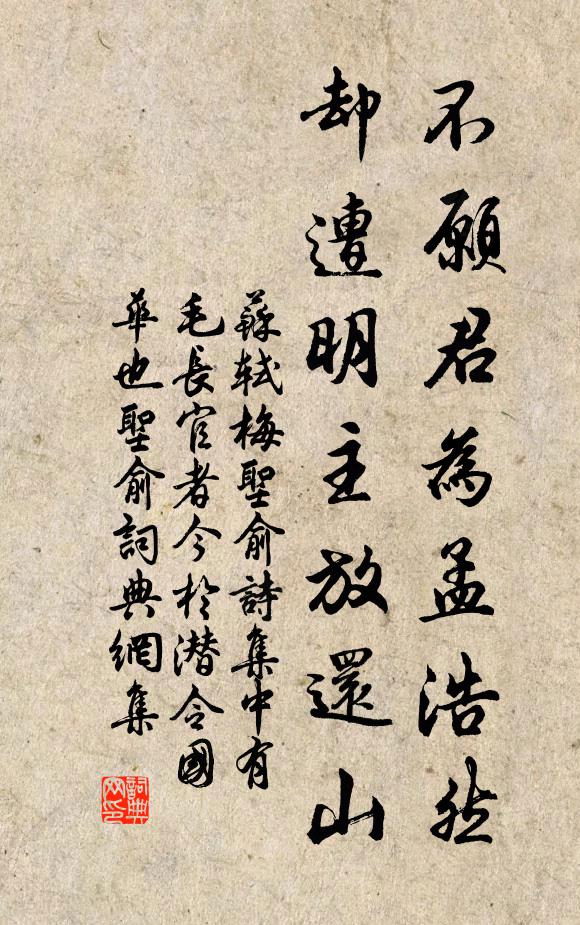 不願君為孟浩然
却遭明主放還山
蘇軾梅聖俞詩集中有
毛長官者今於潛令國
華也聖俞詞典網集
詞典
网印